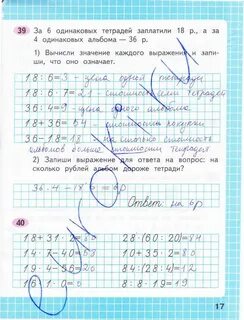 39 За 6 одинаковых тетрадей заплатили 18 р., а за
4 одинаковых альбома — 36 р.
1) Вычисли значение каждого выражения и запи-
ши, что оно означает.
18:6=3 - цена одной тетради
18:6·7=21 - стоимость семи тетрадей
36:4=9 - цена одного альбома
18+36=54 - стоимость покупки
36-18=18 - на сколько стоимость
альбомов больше стоимости тетрадей
2) Запиши выражение для ответа на вопрос: на
сколько рублей альбом дороже тетради?
36:4-18:6=6р
Ответ: на 6р
40
18+31·2=80 28·(60:20)=84
14·7-40=58 10+35·2=80
19·4-56=20 84:(28:4)=12
16·1·0=0 8:8·19=19
17